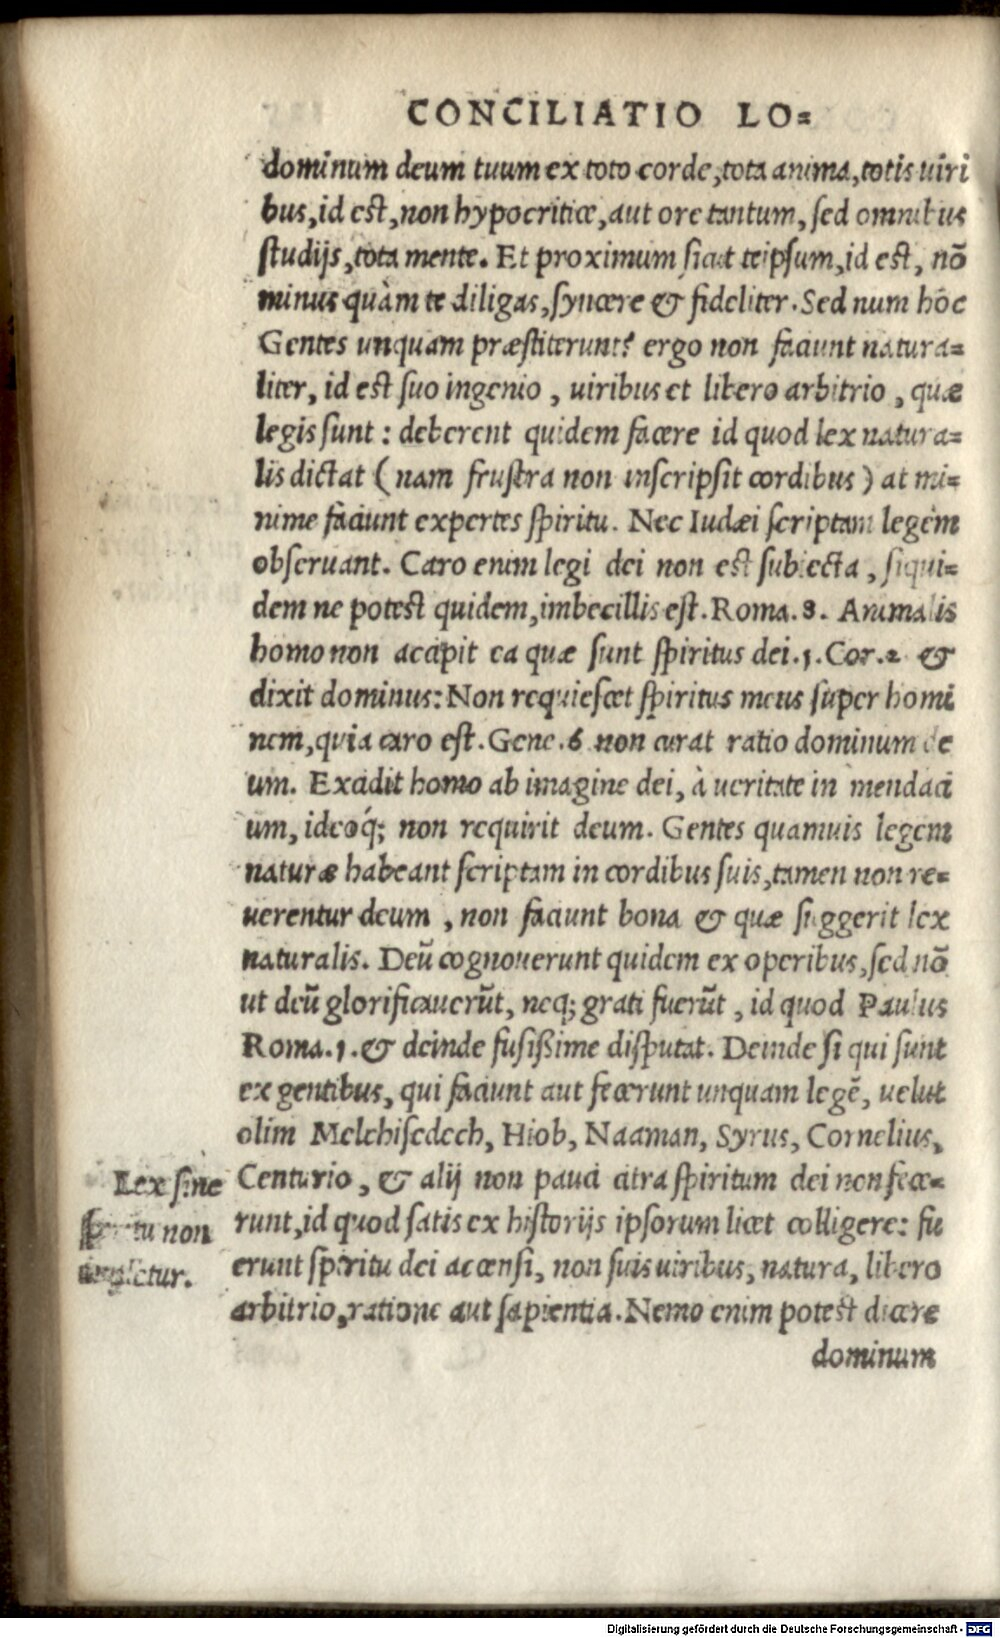 CONCILIATIO LO=
dominum deum tuum ex toto corde, tota anima, totis uiri
bus, id est, non hypocriticæ, aut ore tantum, sed omnibus
studijs, tota mente. Et proximum sicut teipsum, id est, nō
minus quàm te diligas, syncere & fideliter. Sed num hoc
Gentes unquam præstiterunt? ergo non faciunt natura=
liter, id est suo ingenio, uiribus et libero arbitrio, quæ
legis sunt: deberent quidem facere id quod lex natura=
lis dictat (nam frustra non inscripsit cordibus) at mi=
nime faciunt expertes spiritu. Nec Iudæi scriptam legem
obseruant. Caro enim legi dei non est subiecta, siqui=
dem ne potest quidem, imbecillis est. Roma. 8. Animalis
homo non accipit ea quæ sunt spiritus dei. 1. Cor. 2 &
dixit dominus: Non requiescet spiritus meus super homi
nem, quia caro est. Gene. 6 non curat ratio dominum de
um. Excidit homo ab imagine dei, à ueritate in mendaci
um, ideoq́; non requirit deum. Gentes quamuis legem
naturæ habeant scriptam in cordibus suis, tamen non re=
uerentur deum, non faciunt bona & quæ suggerit lex
naturalis. Deū cognouerunt quidem ex operibus, sed nō
ut deū glorificauerūt, neq; grati fuerūt, id quod Paulus
Roma. 1. & deinde fusißime disputat. Deinde si qui sunt
ex gentibus, qui faciunt aut fecerunt unquam legē, uelut
olim Melchisedech, Hiob, Naaman, Syrus, Cornelius,
Centurio, & alij non pauci citra spiritum dei non fece=
runt, id quod satis ex historijs ipsorum licet colligere: fu
erunt spiritu dei accensi, non suis uiribus, natura, libero
arbitrio, ratione aut sapientia. Nemo enim potest dicere
dominum
Lex sine
spiritu non
impletur.
Digitalisierung gefördert durch die Deutsche Forschungsgemeinschaft - DFG